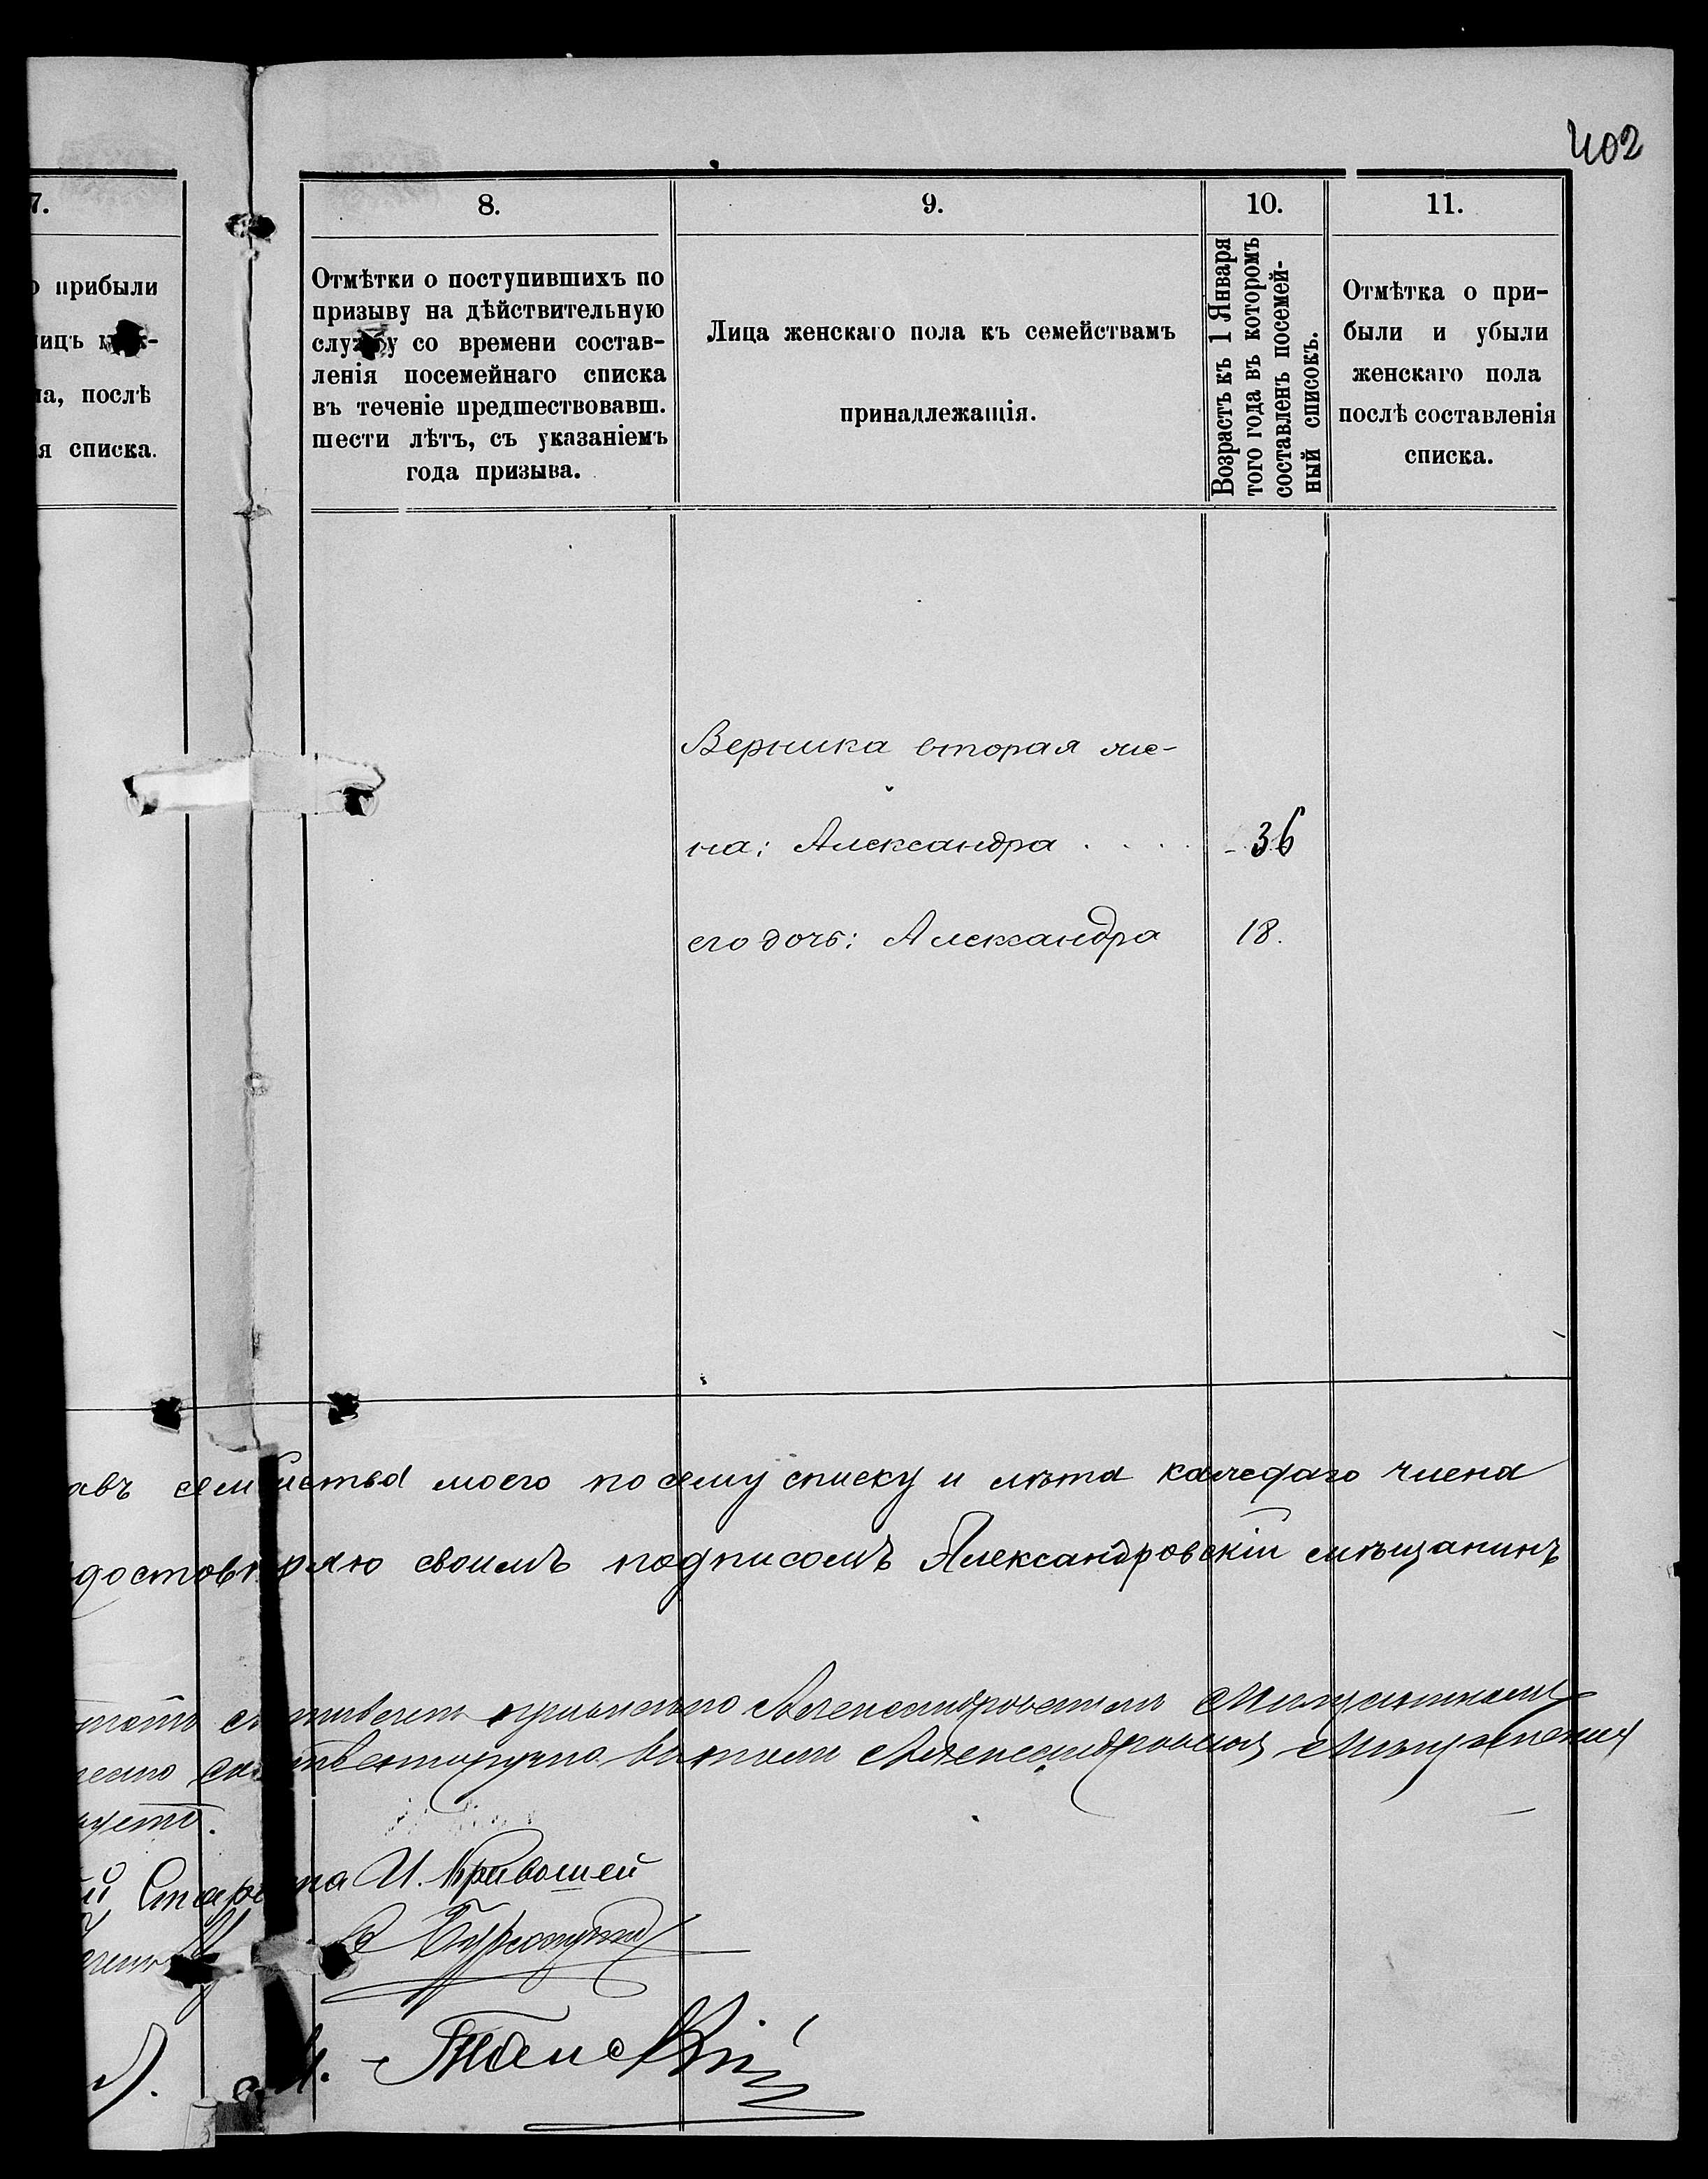 402
7.
о прибыли
лицъ м
на, послѣ
ія списка.
8.
Отмѣтки о поступившихъ по
призыву на дѣйствительную
службу со времени состав-
ленія посемейнаго списка
въ теченіе предшествовавш.
шести лѣтъ, съ указаніемъ
года призыва.
9.
Лица женскаго пола къ семействамъ
принадлежащія.
10.
Возрастъ къ 1 Января
того года въ которомъ
составленъ посемей-
ный списокъ.
11.
Отмѣтка о при-
были и убыли
женскаго пола
послѣ составленія
списка.
Верника вторая же-
на: Александра . . . . 36
его дочь: Александра 18.
авъ семейства моего по сему списку и лѣта каждаго члена
достовѣряю своимъ подписомъ Александровскій мѣщанинъ
Александровскимъ Мѣщанскимъ
собственноручно Александровской Мѣщанской
Староста И. Кривошей